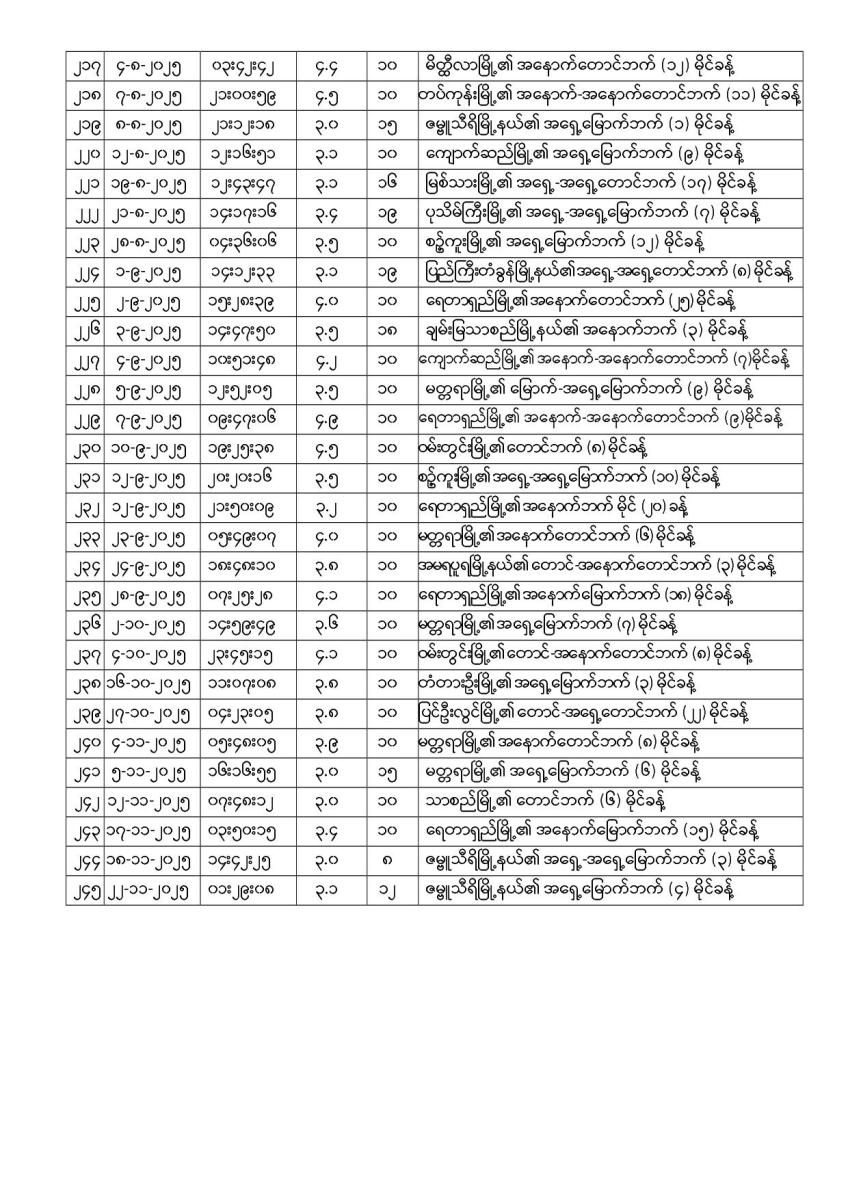 ၂၁၇ ၄-၈-၂၀၂၅ ၀၃း၄၂း၄၂ ၄.၄ ၁၀ မိတ္ထီလာမြို့၏ အနောက်တောင်ဘက် (၁၂) မိုင်ခန့်
၂၁၈ ၇-၈-၂၀၂၅ ၂၁း၀၀း၅၉ ၄.၅ ၁၀ တပ်ကုန်းမြို့၏ အနောက်-အနောက်တောင်ဘက် (၁၁) မိုင်ခန့်
၂၁၉ ၈-၈-၂၀၂၅ ၂၁း၁၂း၁၈ ၃.၀ ၁၅ ဇမ္ဗူသီရိမြို့နယ်၏ အရှေ့မြောက်ဘက် (၁) မိုင်ခန့်
၂၂၀ ၁၂-၈-၂၀၂၅ ၁၂း၁၆း၅၁ ၃.၁ ၁၀ ကျောက်ဆည်မြို့၏ အရှေ့မြောက်ဘက် (၉) မိုင်ခန့်
၂၂၁ ၁၉-၈-၂၀၂၅ ၁၂း၄၃း၄၇ ၃.၁ ၁၆ မြစ်သားမြို့၏ အရှေ့-အရှေ့တောင်ဘက် (၁၇) မိုင်ခန့်
၂၂၂ ၂၁-၈-၂၀၂၅ ၁၄း၁၇း၁၆ ၃.၄ ၁၉ ပုသိမ်ကြီးမြို့၏ အရှေ့-အရှေ့မြောက်ဘက် (၇) မိုင်ခန့်
၂၂၃ ၂၈-၈-၂၀၂၅ ၀၄း၃၆း၀၆ ၃.၅ ၁၀ စဉ့်ကူးမြို့၏ အရှေ့မြောက်ဘက် (၁၂) မိုင်ခန့်
၂၂၄ ၁-၉-၂၀၂၅ ၁၄း၁၂း၃၃ ၃.၁ ၁၉ ပြည်ကြီးတံခွန်မြို့နယ်၏အရှေ့-အရှေ့တောင်ဘက် (၈) မိုင်ခန့်
၂၂၅ ၂-၉-၂၀၂၅ ၁၅း၂၈း၃၉ ၄.၀ ၁၀ ရေတာရှည်မြို့၏အနောက်တောင်ဘက် (၂၅) မိုင်ခန့်
၂၂၆ ၃-၉-၂၀၂၅ ၁၄း၄၇း၅၀ ၃.၅ ၁၈ ချမ်းမြသာစည်မြို့နယ်၏ အနောက်ဘက် (၃) မိုင်ခန့်
၂၂၇ ၄-၉-၂၀၂၅ ၁၀း၅၁း၄၈ ၄.၂ ၁၀ ကျောက်ဆည်မြို့၏ အနောက်-အနောက်တောင်ဘက် (၇)မိုင်ခန့်
၂၂၈ ၅-၉-၂၀၂၅ ၁၂း၅၂း၀၅ ၃.၅ ၁၀ မတ္တရာမြို့၏ မြောက်-အရှေ့မြောက်ဘက် (၉) မိုင်ခန့်
၂၂၉ ၇-၉-၂၀၂၅ ၀၉း၄၇း၀၆ ၄.၉ ၁၀ ရေတာရှည်မြို့၏ အနောက်-အနောက်တောင်ဘက် (၉)မိုင်ခန့်
၂၃၀ ၁၀-၉-၂၀၂၅ ၁၉း၂၅း၃၈ ၄.၅ ၁၀ ဝမ်းတွင်းမြို့၏တောင်ဘက် (၈) မိုင်ခန့်
၂၃၁ ၁၂-၉-၂၀၂၅ ၂၀း၂၀း၁၆ ၃.၅ ၁၀ စဉ့်ကူးမြို့၏အရှေ့-အရှေ့မြောက်ဘက် (၁၀) မိုင်ခန့်
၂၃၂ ၁၂-၉-၂၀၂၅ ၂၁း၅၀း၀၉ ၃.၂ ၁၀ ရေတာရှည်မြို့၏အနောက်ဘက် မိုင် (၂၀) ခန့်
၂၃၃ ၂၃-၉-၂၀၂၅ ၀၅း၄၉း၀၇ ၄.၀ ၁၀ မတ္တရာမြို့၏အနောက်တောင်ဘက် (၆) မိုင်ခန့်
၂၃၄ ၂၄-၉-၂၀၂၅ ၁၈း၄၈း၁၀ ၃.၈ ၁၀ အမရပူရမြို့နယ်၏တောင်-အနောက်တောင်ဘက် (၃) မိုင်ခန့်
၂၃၅ ၂၈-၉-၂၀၂၅ ၀၇း၂၅း၂၈ ၄.၁ ၁၀ ရေတာရှည်မြို့၏အနောက်မြောက်ဘက် (၁၈) မိုင်ခန့်
၂၃၆ ၂-၁၀-၂၀၂၅ ၁၄း၅၉း၄၉ ၃.၆ ၁၀ မတ္တရာမြို့၏အရှေ့မြောက်ဘက် (၇) မိုင်ခန့်
၂၃၇ ၄-၁၀-၂၀၂၅ ၂၃း၄၅း၁၅ ၄.၁ ၁၀ ဝမ်းတွင်းမြို့၏တောင်-အနောက်တောင်ဘက် (၈) မိုင်ခန့်
၂၃၈ ၁၆-၁၀-၂၀၂၅ ၁၁း၀၇း၀၈ ၃.၈ ၁၀ တံတားဦးမြို့၏အရှေ့မြောက်ဘက် (၃) မိုင်ခန့်
၂၃၉ ၂၇-၁၀-၂၀၂၅ ၀၄း၂၃း၀၅ ၃.၈ ၁၀ ပြင်ဦးလွင်မြို့၏တောင်-အရှေ့တောင်ဘက် (၂၂) မိုင်ခန့်
၂၄၀ ၄-၁၁-၂၀၂၅ ၀၅း၄၈း၀၅ ၃.၉ ၁၀ မတ္တရာမြို့၏ အနောက်တောင်ဘက် (၈) မိုင်ခန့်
၂၄၁ ၅-၁၁-၂၀၂၅ ၁၆း၁၆း၅၅ ၃.၀ ၁၅ မတ္တရာမြို့၏ အရှေ့မြောက်ဘက် (၆) မိုင်ခန့်
၂၄၂ ၁၂-၁၁-၂၀၂၅ ၀၇း၄၈း၁၂ ၃.၀ ၁၀ သာစည်မြို့၏ တောင်ဘက် (၆) မိုင်ခန့်
၂၄၃ ၁၇-၁၁-၂၀၂၅ ၀၃း၅၀း၁၅ ၃.၄ ၁၀ ရေတာရှည်မြို့၏ အနောက်မြောက်ဘက် (၁၅) မိုင်ခန့်
၂၄၄ ၁၈-၁၁-၂၀၂၅ ၁၄း၄၂း၂၅ ၃.၀ ၈ ဇမ္ဗူသီရိမြို့နယ်၏ အရှေ့-အရှေ့မြောက်ဘက် (၃) မိုင်ခန့်
၂၄၅ ၂၂-၁၁-၂၀၂၅ ၀၁း၂၉း၀၈ ၃.၁ ၁၂ ဇမ္ဗူသီရိမြို့နယ်၏ အရှေ့မြောက်ဘက် (၄) မိုင်ခန့်